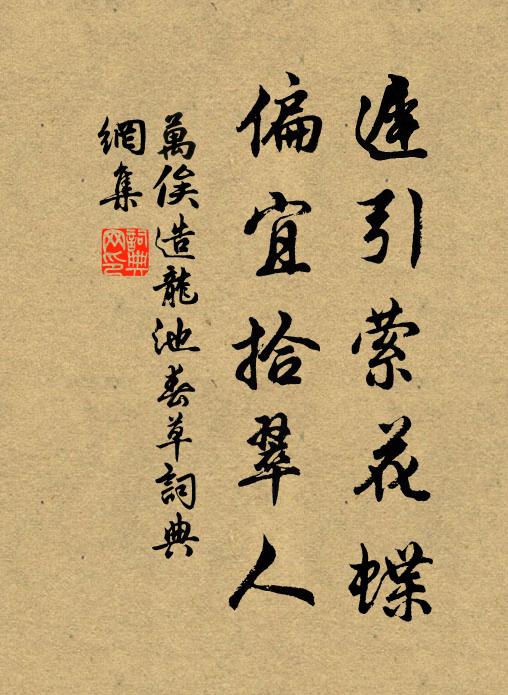 遲引縈花蝶
偏宜拾翠人
萬俟造龍池春草詞典
網集
詞典網印